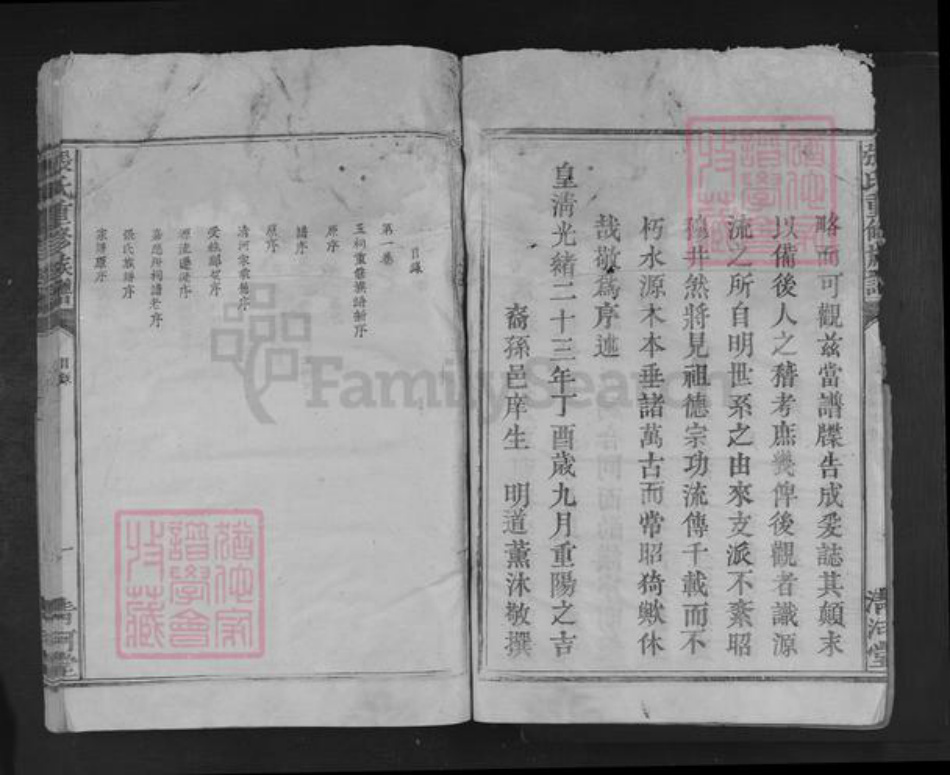 張氏重修族譜
略而可觀兹當譜牒告成爰誌其顛末
以備後人之稽考庶幾俾後觀者識源
流之所自明世系之由來支派不紊昭
穆井然將見祖德宗功流傳千載而不
朽水源木本垂諸萬古而常昭猗歟休
哉敬為序述
皇清光緒二十三年丁酉歲九月重陽之吉
裔孫邑庠生 明道薰沐敬撰
清河堂
目錄
第一卷
五祠重修族譜新序
原序
譜序
原序
清河家乘舊序
受姓郡望序
源流遷徙序
嘉應州祠譜老序
張氏族譜序
宗譜原序
張氏重修族譜
目錄
一
清河堂
FamilySearch